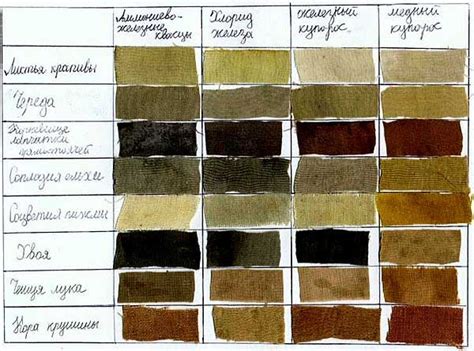 Алюминиево-
железные
квасцы
Хлорид
железа
железный
купорос
медный
купорос
Листья крапивы
Череда
Корневище
лапчатки
прямостоячей
Соплодия ольхи
Соцветия пижмы
Хвоя
Чешуя лука
Кора крушины